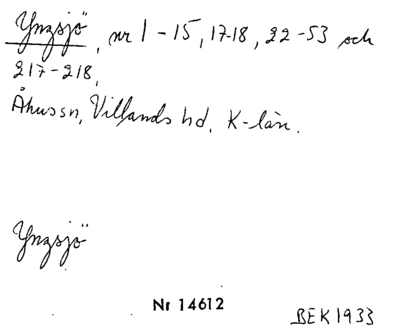 Yngsjö, nr 1-15, 17-18, 22-53 och
217-218,
Åhus sn, Villands hd, K-län.
Yngsjö
Nr 14612
BEK 1933